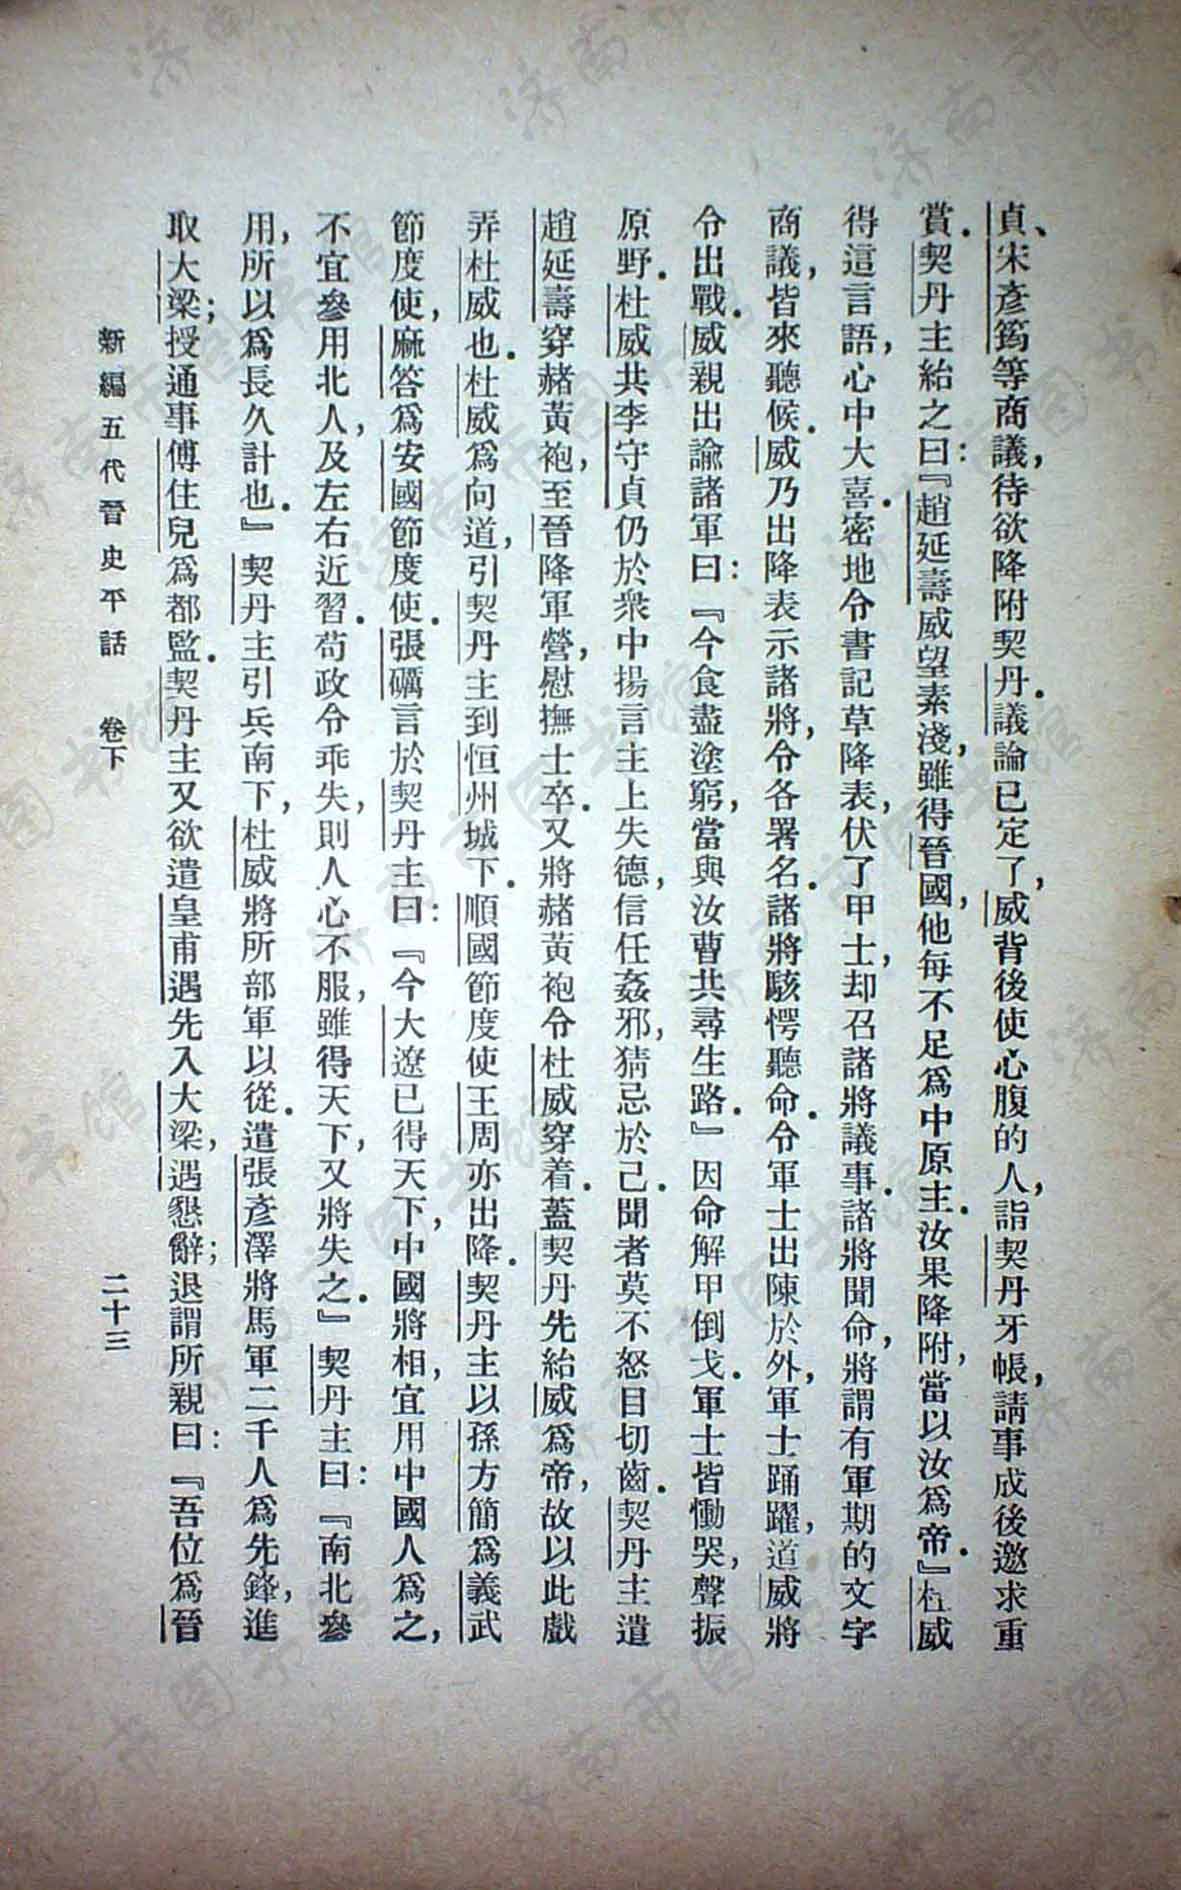 貞、宋彥筠等商議，待欲降附契丹．議論已定了，威背後使心腹的人，詣契丹牙帳，請事成後邀求重
賞．契丹主紿之曰：『趙延壽威望素淺，雖得晉國，他每不足爲中原主．汝果降附，當以汝爲帝．』杜威
得這言語，心中大喜．密地令書記草降表，伏了甲士，却召諸將議事．諸將聞命，將謂有軍期的文字
商議，皆來聽候．威乃出降表示諸將，令各署名．諸將駭愕聽命．令軍士出陳於外，軍士踊躍，道威將
令出戰．威親出諭諸軍曰：『今食盡塗窮，當與汝曹共尋生路．』因命解甲倒戈．軍士皆慟哭，聲振
原野．杜威共李守貞仍於衆中揚言主上失德，信任姦邪，猜忌於己．聞者莫不怒目切齒．契丹主遣
趙延壽穿赭黃袍，至晉降軍營，慰撫士卒．又將赭黃袍令杜威穿着．蓋契丹先紿威爲帝，故以此戲
弄杜威也．杜威爲向道，引契丹主到恒州城下．順國節度使王周亦出降．契丹主以孫方簡爲義武
節度使，麻答爲安國節度使．張礪言於契丹主曰：『今大遼已得天下，中國將相，宜用中國人爲之，
不宜參用北人，及左右近習．苟政令乖失，則人心不服，雖得天下，又將失之．』契丹主曰：『南北參
用，所以爲長久計也．』契丹主引兵南下，杜威將所部軍以從．遣張彥澤將馬軍二千人爲先鋒，進
取大梁；授通事傅住兒爲都監．契丹主又欲遣皇甫遇先入大梁，遇懇辭；退謂所親曰：『吾位爲晉
新編五代晉史平話　卷下　二十三
济南市图书馆